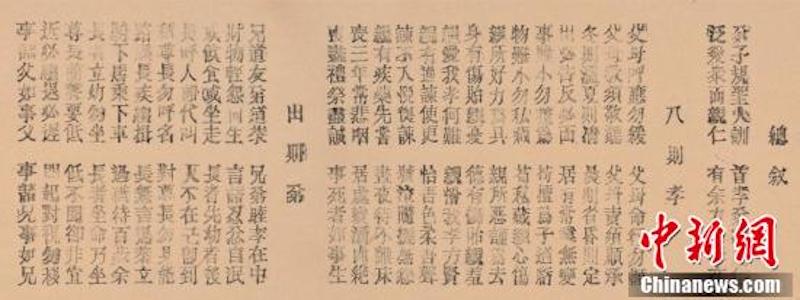 總叙
弟子規聖人訓 首孝弟
泛愛眾而親仁 有余力
入則孝
父母呼應勿緩 父母命行勿懶
父母教須敬聽 父母責須順承
冬則溫夏則凊 晨則省昏則定
出必告反必面 居有常業無變
事雖小勿擅為 苟擅為子道虧
物雖小勿私藏 苟私藏親心傷
親所好力為具 親所惡謹為去
身有傷貽親憂 德有傷貽親羞
親愛我孝何難 親憎我孝方賢
親有過諫使更 怡吾色柔吾聲
諫不入悅復諫 號泣隨撻無怨
親有疾藥先嘗 晝夜侍不離床
喪三年常悲咽 居處變酒肉絕
喪盡禮祭盡誠 事死者如事生
出則弟
兄道友弟道恭 兄弟睦孝在中
財物輕怨何生 言語忍忿自泯
或飲食或坐走 長者先幼者後
長呼人即代叫 人不在己即到
稱尊長勿呼名 對尊長勿見能
路遇長疾趨揖 長無言退恭立
騎下馬乘下車 過猶待百步余
長者立幼勿坐 長者坐命乃坐
尊長前聲要低 低不聞卻非宜
近必趨退必遲 問起對視勿移
事諸父如事父 事諸兄如事兄
中新網
Chinanews.com